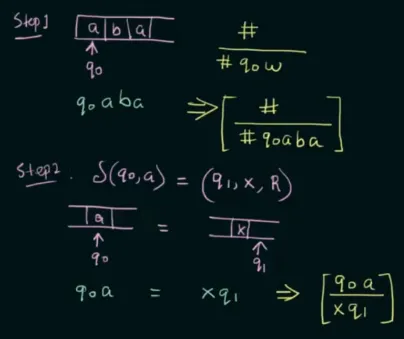 Step1 | a | b | a | #
q₀ # q₀ w
q₀ a b a ⇒ [ #
# q₀ a b a ]
Step2. δ(q₀, a) = (q₁, x, R)
| a | = | x |
q₀ q₁
q₀ a = x q₁ ⇒ [ q₀ a
x q₁ ]